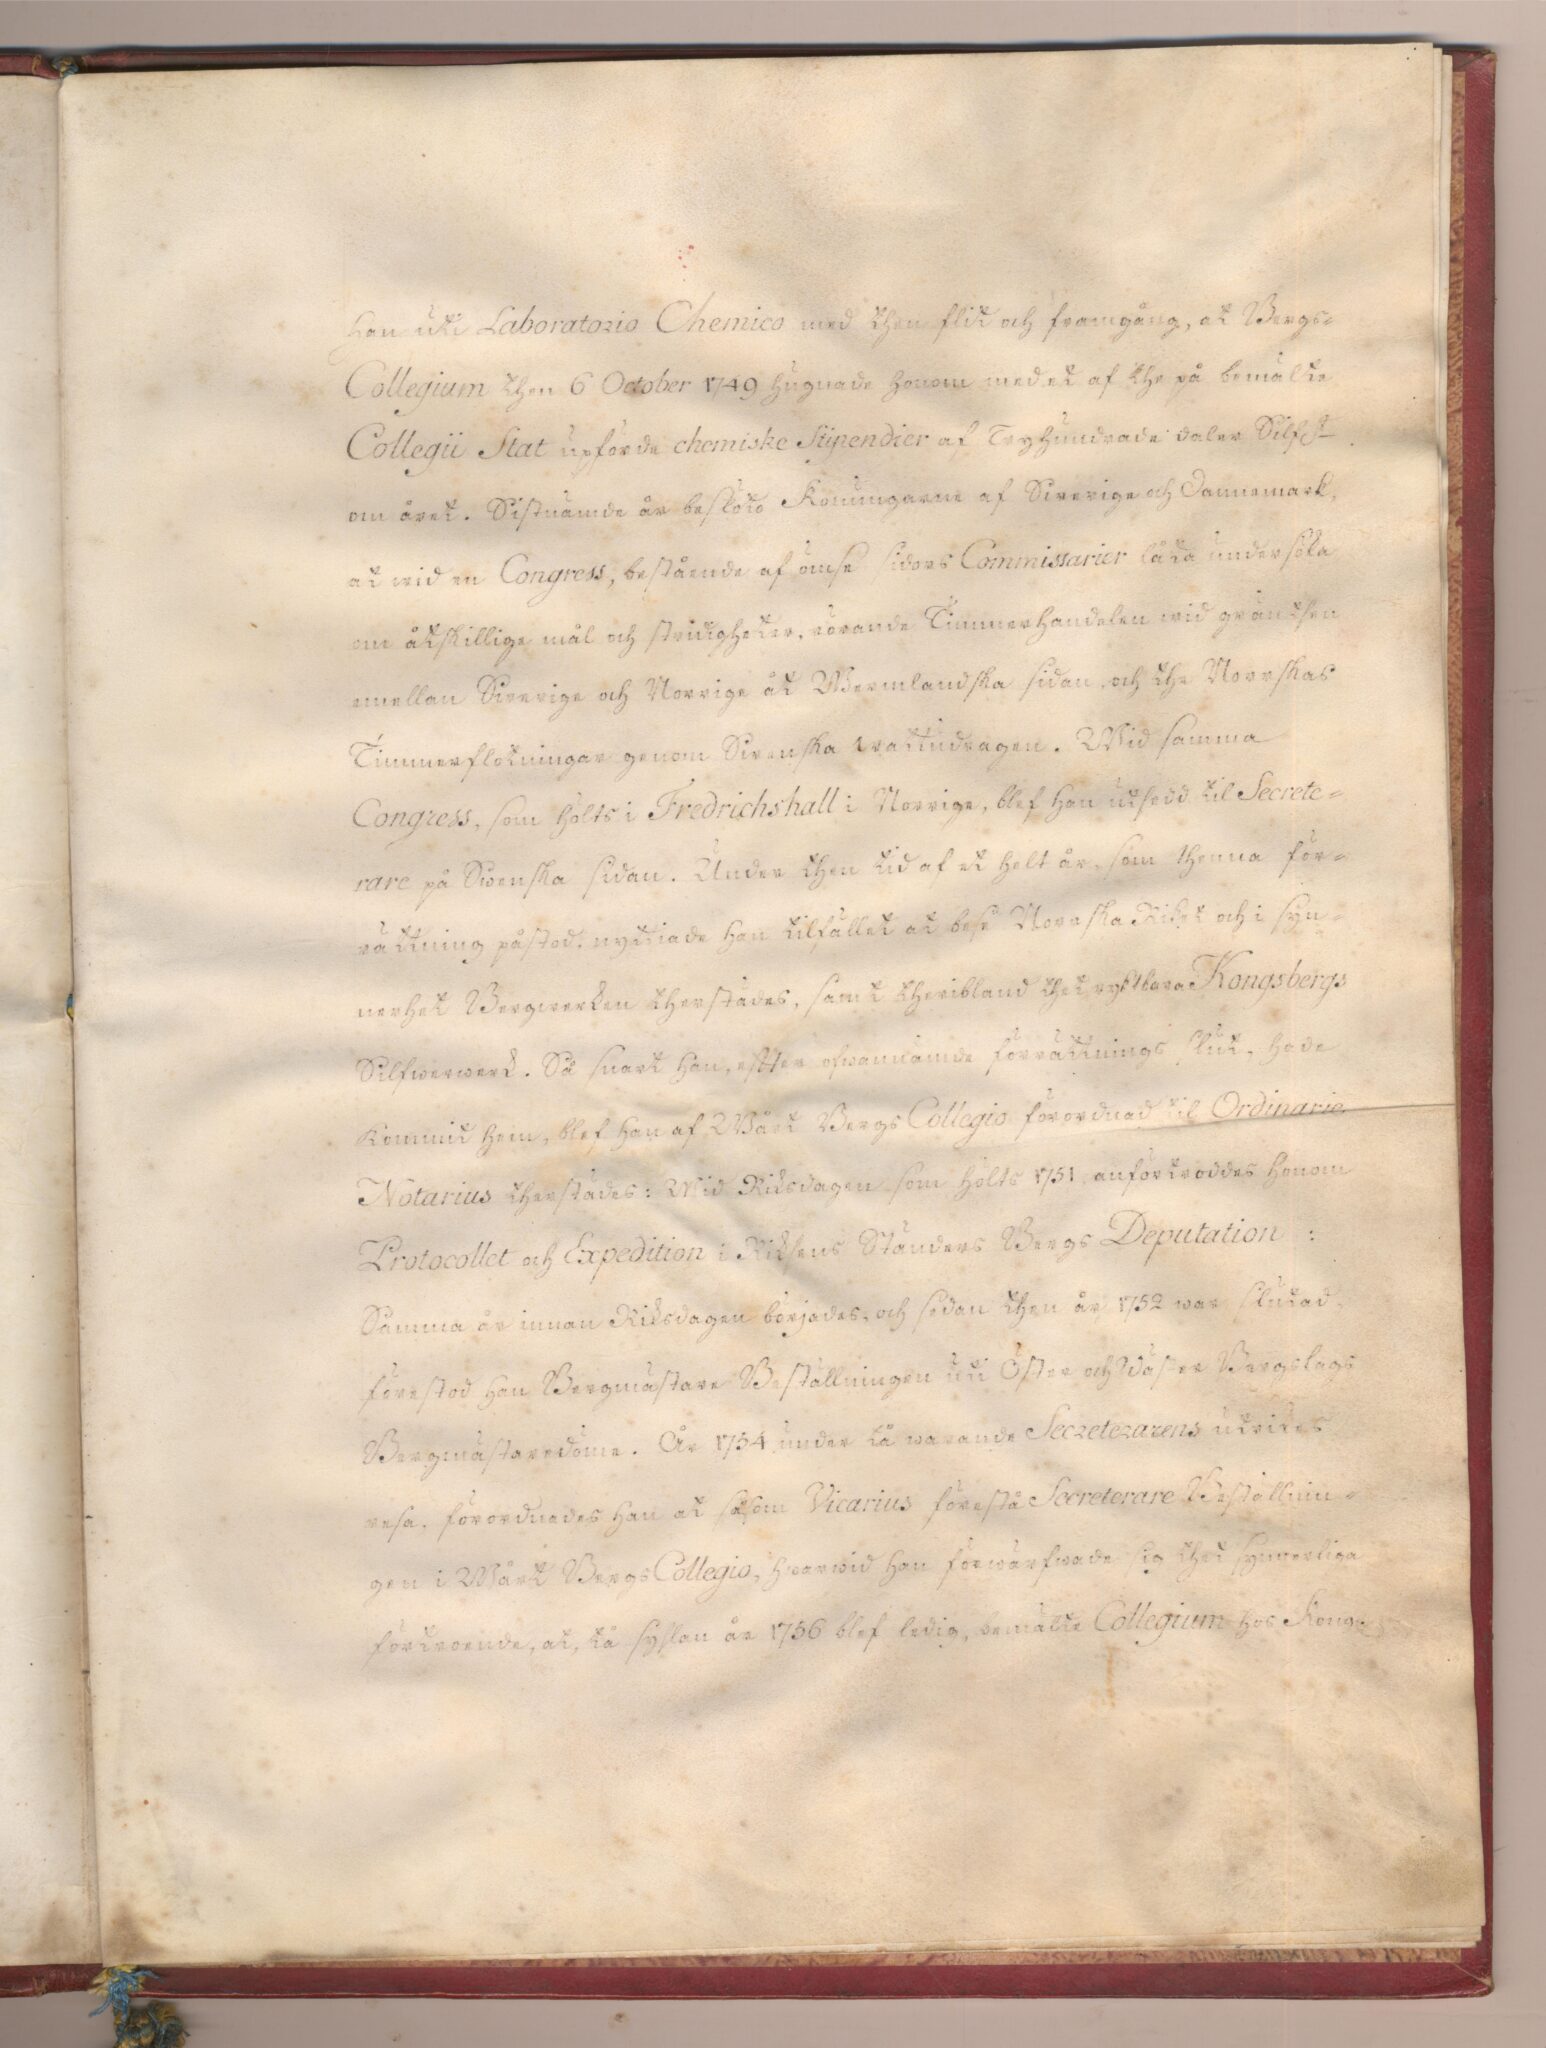 han uti Laboratorio Chemico med then flit och framgång, at Bergs-
Collegium then 6 October 1749 hugnade honom med et af the på bemälte
Collegii Stat upförde chemiske Stipendier af Tryhundrade daler Silf:r
om året. Sistnämde år beslöto Konungarne af Swerige och Dannemark,
at wid en Congress, bestående af ömse sidors Commissarier låta undersöka
om åtskillige mål och stridigheter, rörande Timmerhandelen wid gräntsen
emellan Swerige och Norrige åt Wermlandska sidan, och the Norrskas
Timmerflotningar genom Swenska wattudragen. Wid samma
Congress, som hölts i Fredrichshall i Norrige, blef han utsedd til Secrete-
rare på Swenska sidan. Under then tid af et helt år, som thenna för-
rättning påstod, nyttiade han tilfället at bese Norrska Riket och i syn-
nerhet Bergwerken therstädes, samt theribland thet ryktbara Kongsbergs
Silfwerwerk. Så snart han, efter ofwannämde förrättnings slut, hade
kommit hem, blef han af Wårt Bergs Collegio förordnad til Ordinarie
Notarius therstädes: Wid Riksdagen som hölts 1751 anförtroddes honom
Protocollet och Expedition i Riksens Ständers Bergs Deputation:
Samma år innan Riksdagen börjades, och sedan then år 1752 war slutad,
förestod han Bergmästare Beställningen uti Öster och Wäster Bergslags
Bergmästaredöme. År 1754 under tå warande Secreterarens utrikes
resa, förordnades han at såsom Vicarius förestå Secreterare Beställnin-
gen i Wårt Bergs Collegio, hwarwid han förwärfwade sig thet synnerliga
förtroende, at, tå syslan år 1756 blef ledig, bemälte Collegium hos Kong.